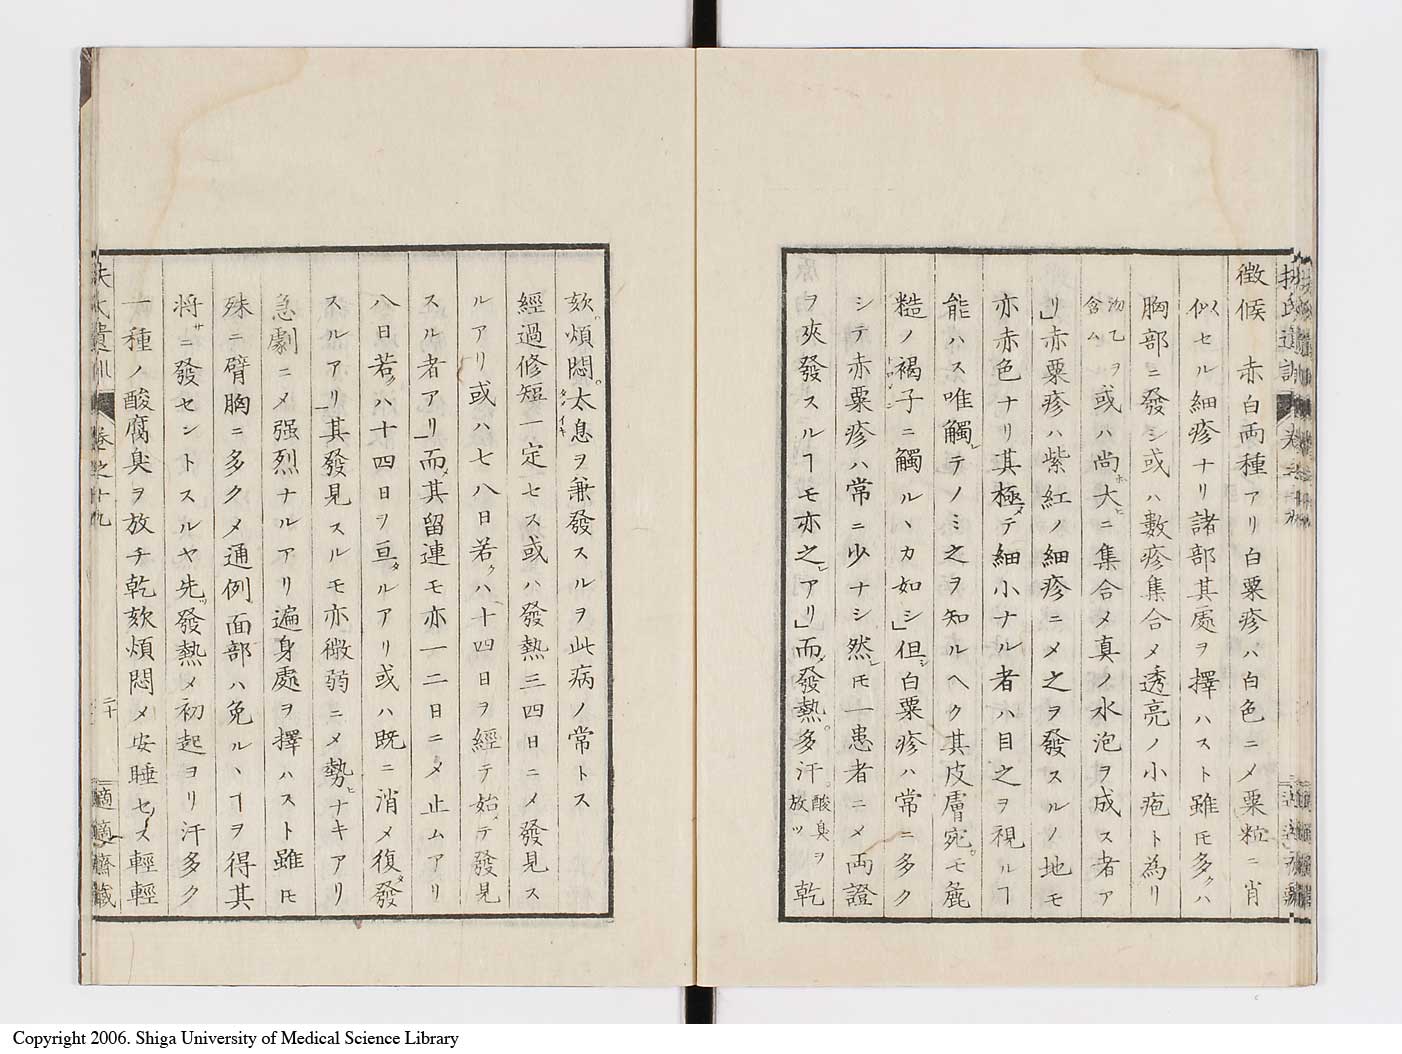 徴候　赤白両種アリ白粟疹ハ白色ニメ粟粒ニ肖
似セル細疹ナリ諸部其處ヲ擇ハスト雖𪜈多クハ
胸部ニ發シ或ハ數疹集合メ透亮ノ小疱ト為リ
沕乙ヲ含ム或ハ尚大ニ集合メ真ノ水泡ヲ成ス者ア
リ」赤粟疹ハ紫紅ノ細疹ニメ之ヲ發スルノ地モ
亦赤色ナリ其極メテ細小ナル者ハ目之ヲ視ルヿ
能ハス唯觸レテノミ之ヲ知ルヘク其皮膚宛モ麁
糙ノ褐子ニ觸ルヽカ如シ」但シ白粟疹ハ常ニ多ク
シテ赤粟疹ハ常ニ少ナシ然レ𪜈一患者ニメ両證
ヲ夾發スルヿモ亦之レアリ」而メ發熱。多汗。酸臭ヲ放ツ乾
欬。煩悶。太息ヲ兼發スルヲ此病ノ常トス
經過修短一定セス或ハ發熱三四日ニメ發見ス
ルアリ或ハ七八日若クハ十四日ヲ經テ始テ發見
スル者アリ」而メ其留連モ亦一二日ニメ止ムアリ
八日若クハ十四日ヲ亘タルアリ或ハ既ニ消メ復タ發
スルアリ」其發見スルモ亦微弱ニメ勢ヒナキアリ
急劇ニメ强烈ナルアリ遍身處ヲ擇ハスト雖𪜈
殊ニ臂胸ニ多クメ通例面部ハ免ルヽヿヲ得其
将サニ發セントスルヤ先ツ發熱メ初起ヨリ汗多ク
一種ノ酸腐臭ヲ放チ乾欬煩悶メ安睡セス輕輕
扶氏遺訓　卷之十九
二十
適適齋藏
Copyright 2006. Shiga University of Medical Science Library